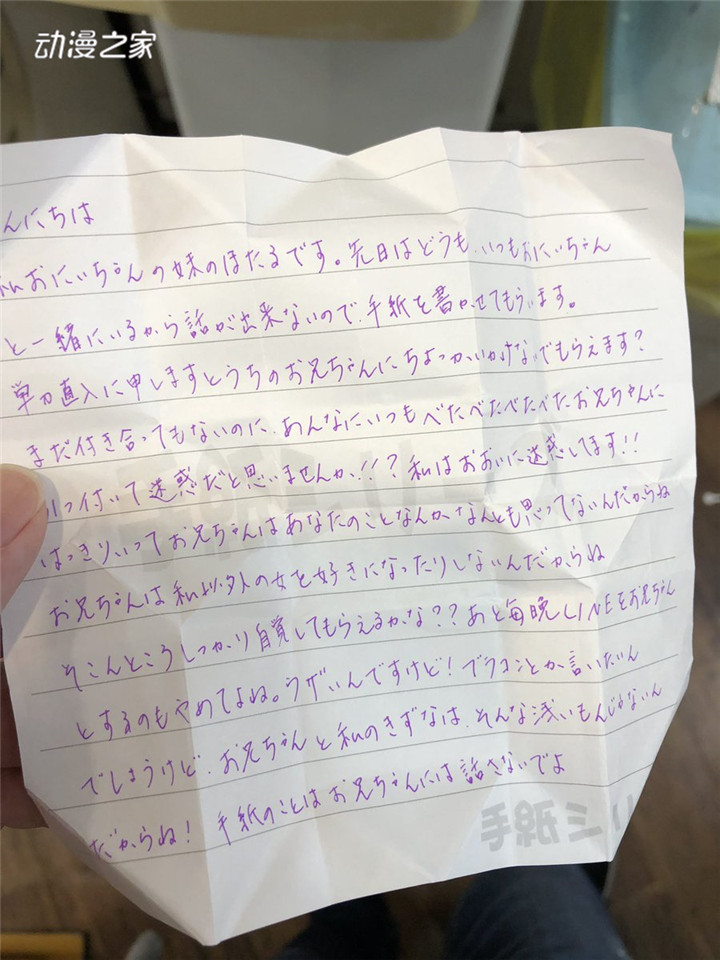 动漫之家
んにちは
私おにいちゃんの妹のほたるです。先日はどうも、いつもおにいちゃん
と一緒にいるから話が出来ないので、手紙を書かせてもらいます。
単刀直入に申しますとうちのお兄ちゃんにちょっかいかけないでもらえます？
まだ付き合ってもないのに、あんなにいつもべたべたべたべたお兄ちゃんに
っ付いて迷惑だと思いませんか！！？私はおおいに迷惑してます！！
はっきりいってお兄ちゃんはあなたのことなんかなんとも思ってないんだからね
お兄ちゃんは私以外の女を好きになったりしないんだからね
そこんところしっかり自覚してもらえるかな？？あと毎晩LINEをお兄ちゃん
とするのもやめてよね。うざいんですけど！ブラコンとか言いたいん
でしょうけど、お兄ちゃんと私のきずなは、そんな浅いもんじゃないん
だからね！手紙のことはお兄ちゃんには話さないでよ
手紙ミリ